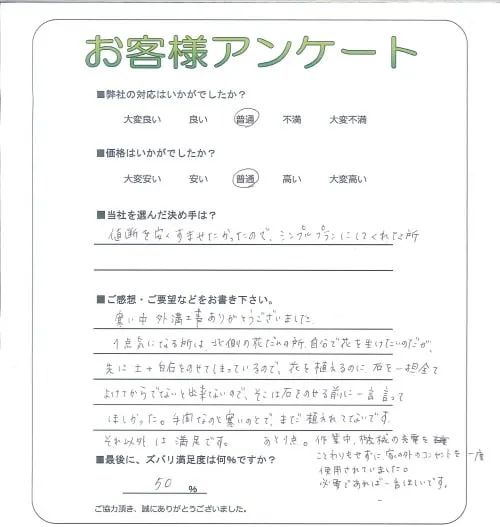 お客様アンケート
■弊社の対応はいかがでしたか？
大変良い 良い 普通 不満 大変不満
■価格はいかがでしたか？
大変安い 安い 普通 高い 大変高い
■当社を選んだ決め手は？
値断を安くすませたかったので、シンプルプランにしてくれた所
■ご感想・ご要望などをお書き下さい。
寒い中 外溝工事ありがとうございました。
1点気になる所は 北側の花だんの所、自分で花を生けたいのだが、
先に土＋白石をのせてしまっているので、花を植えるのに 石を一担全て
よけてからでないと出来ないので、そこは石をのせる前に一言言って
ほしかった。手間なのと寒いのとで、まだ植えれてないです。
それ以外は 満足です。 あと1点。作業中、機械の充電を
ことわりもせずに、家の外のコンセントを一度
使用されていました。
必要であれば一言ほしいです。
■最後に、ズバリ満足度は何%ですか？
50 %
ご協力頂き、誠にありがとうございました。